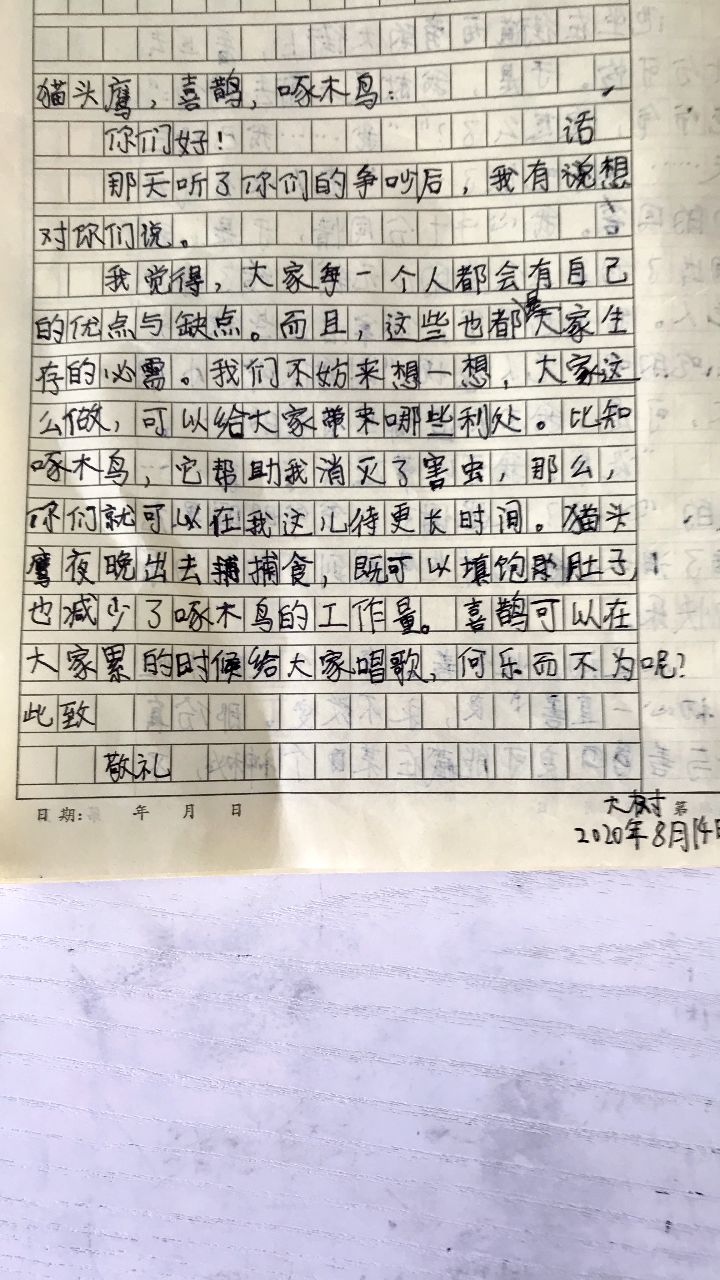 猫头鹰，喜鹊，啄木鸟：
你们好！
那天听了你们的争吵后，我有话想
对你们说。
我觉得，大家每一个人都会有自己
的优点与缺点。而且，这些也都是大家生
存的必需。我们不妨来想一想，大家这
么做，可以给大家带来哪些利处。比如
啄木鸟，它帮助我消灭了害虫，那么，
你们就可以在我这儿待更长时间。猫头
鹰夜晚出去捕食，既可以填饱肚子，
也减少了啄木鸟的工作量。喜鹊可以在
大家累的时候给大家唱歌，何乐而不为呢？
此致
敬礼
大树
2020年8月14日
日期: 年 月 日 第